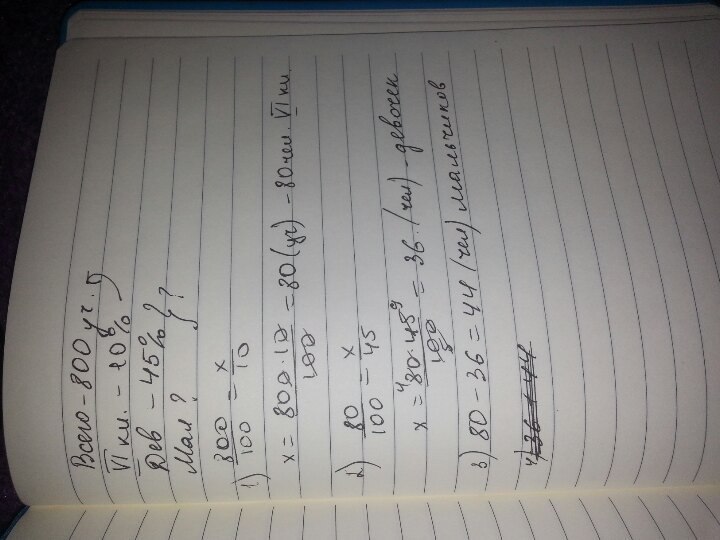 Всего - 800 уч.
VI кл. - 10%
Дев - 45% } ?
Мал ?
1) 800/100 = x/10
x = 800·10/100 = 80 (уч) - 80 чел. VI кл.
2) 80/100 = x/45
x = 80·45/100 = 36 (чел) - девочек
3) 80 - 36 = 44 (чел) мальчиков
4) 36 + 44